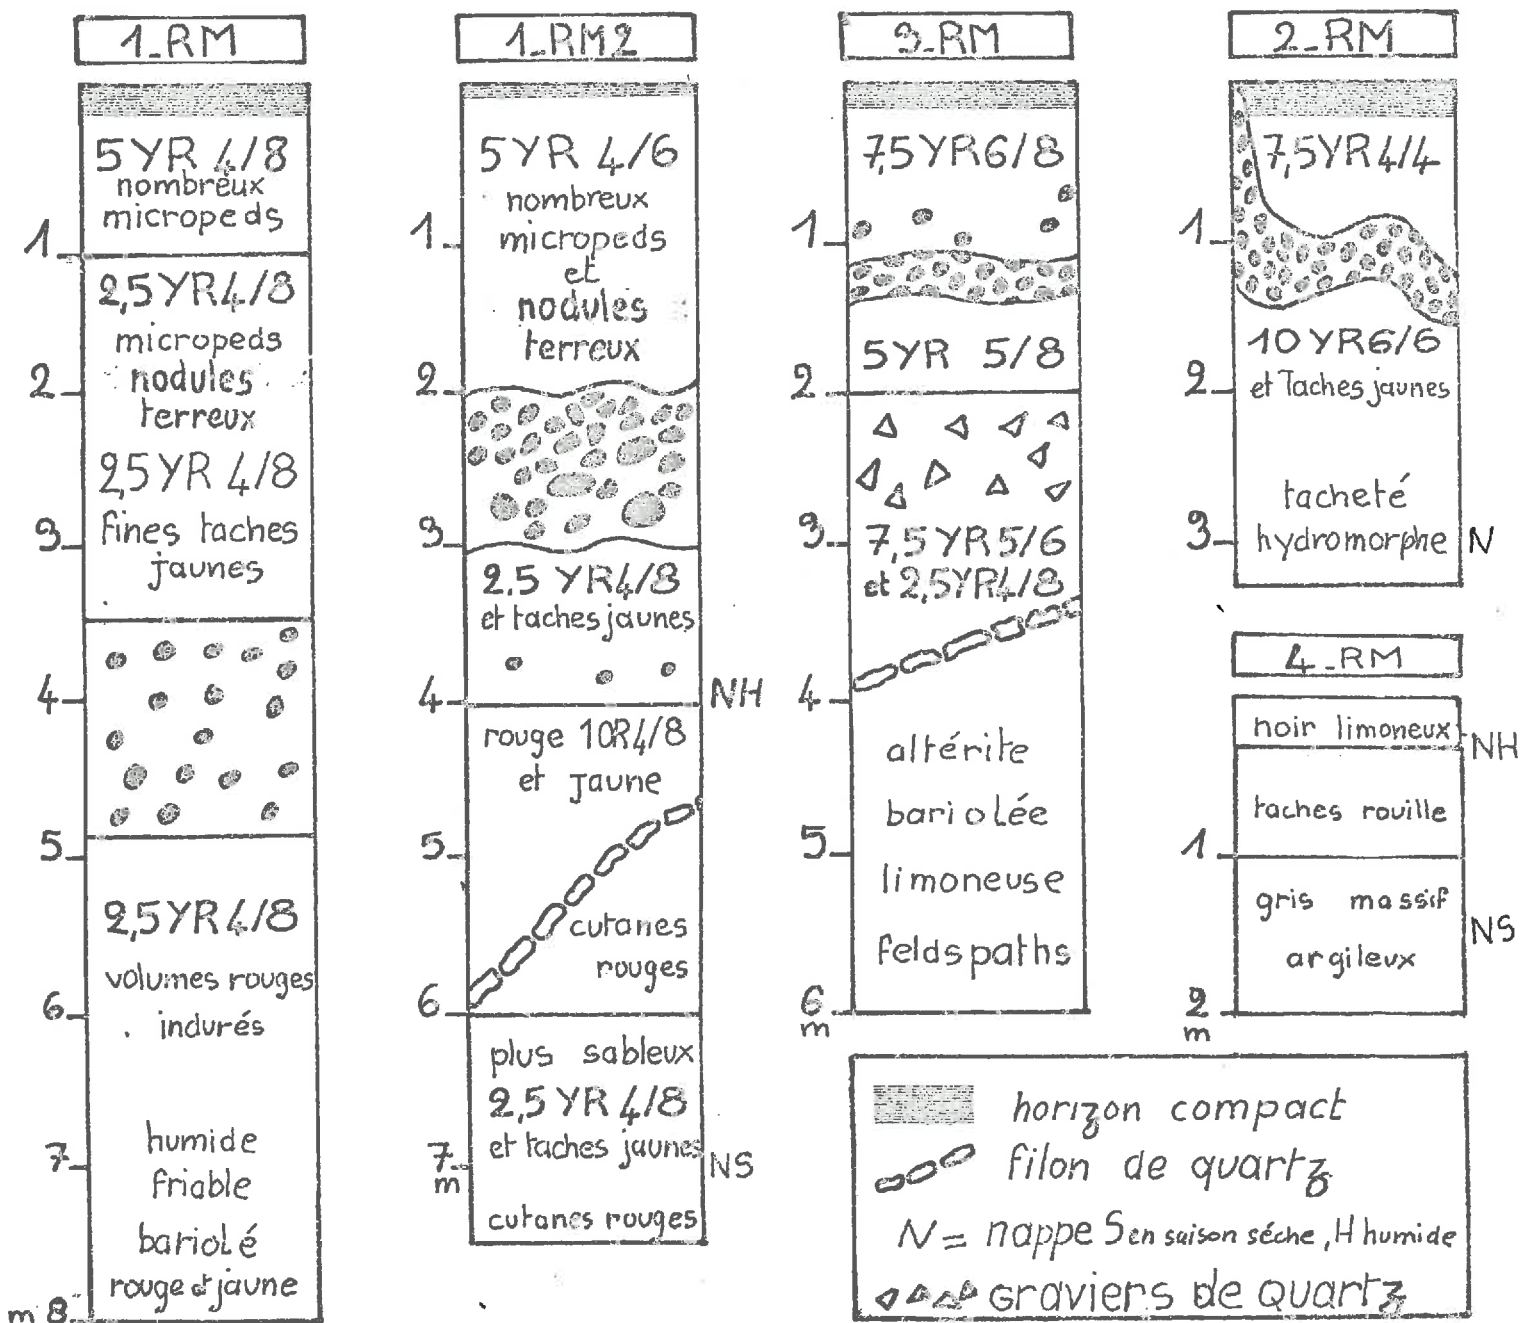 1_RM
5 YR 4/8
nombreux
micropeds
1
2,5 YR 4/8
micropeds
2
nodules
terreux
2,5 YR 4/8
3
fines taches
jaunes
4
5
2,5 YR 4/8
volumes rouges
6
indurés
humide
7
friable
bariolé
rouge et jaune
m 8
1_RM2
5 YR 4/6
nombreux
1
micropeds
et
nodules
terreux
2
3
2.5 YR 4/8
et taches jaunes
4
NH
rouge 10R4/8
et jaune
5
cutanes
rouges
6
plus sableux
2,5 YR 4/8
et taches jaunes
7
NS
m
cutanes rouges
3_RM
7,5 YR 6/8
1
5 YR 5/8
2
3
7,5 YR 5/6
et 2,5YR4/8
4
altérite
bariolée
5
limoneuse
feldspaths
6
m
2_RM
7,5YR 4/4
1
10 YR 6/6
2
et Taches jaunes
tacheté
3
hydromorphe
N
4_RM
noir limoneux
NH
taches rouille
1
gris massif
NS
argileux
2
m
horizon compact
filon de quartz
N = nappe S en saison séche, H humide
Graviers de Quartz